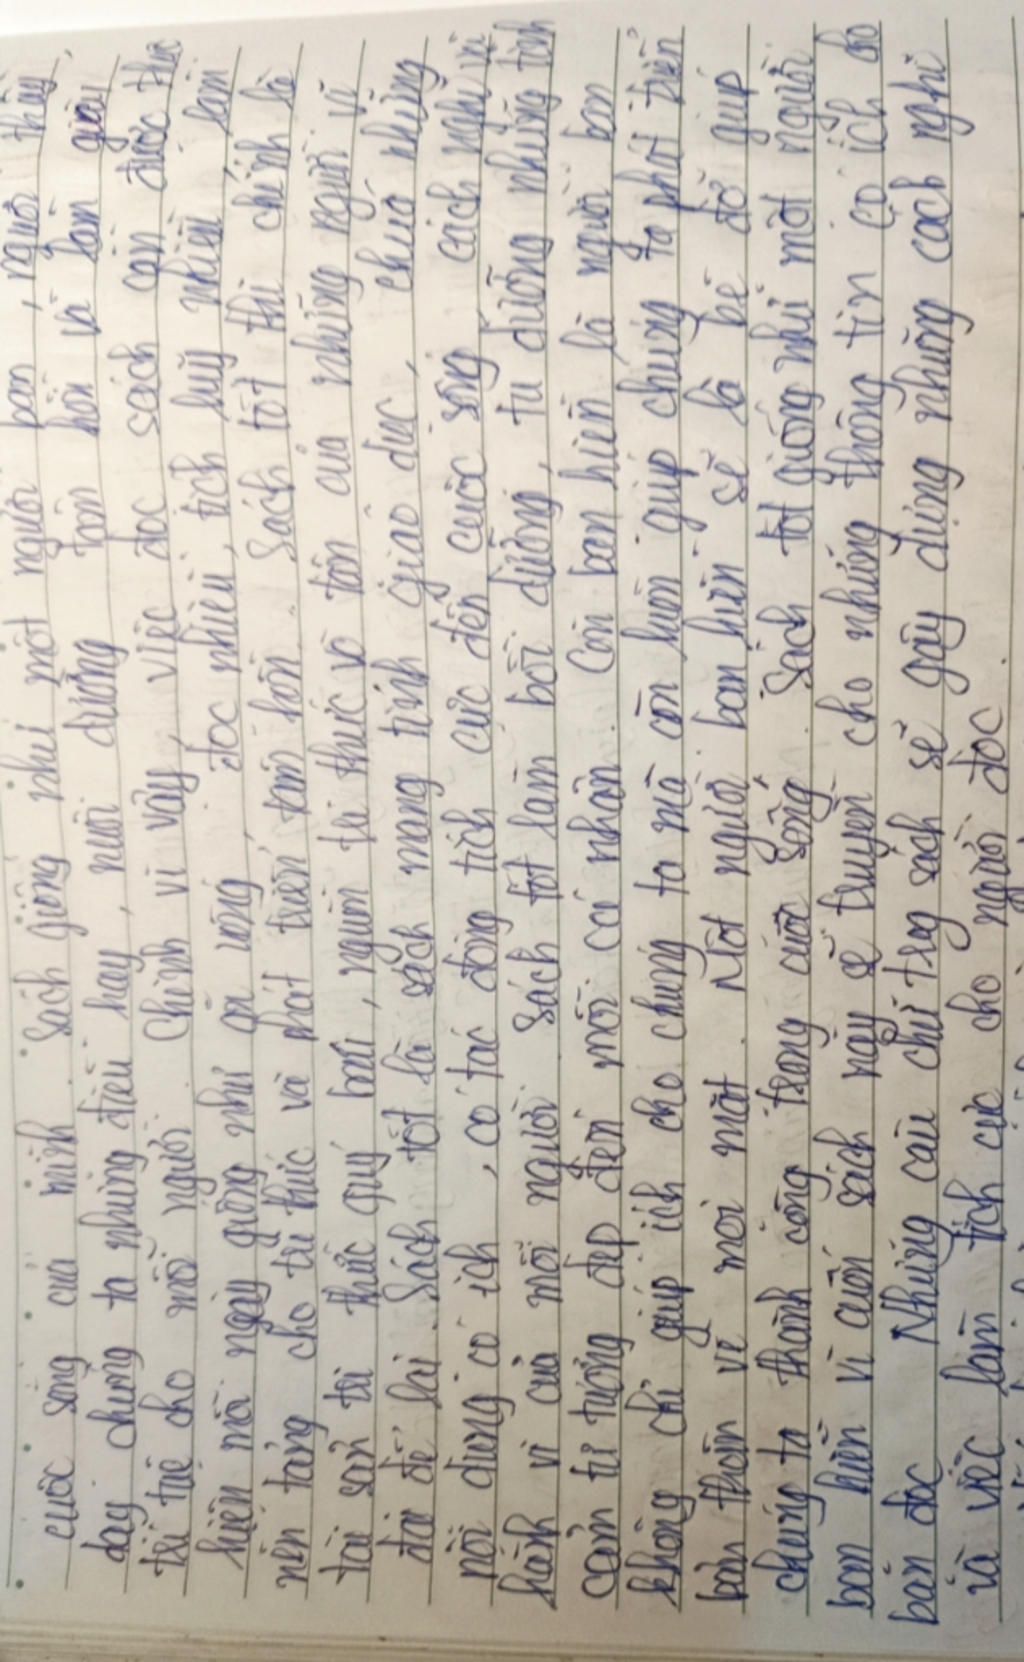 cuộc sống của mình. Sách giống như một người bạn, người thầy,
dạy chúng ta những điều hay, nuôi dưỡng tâm hồn và làm giàu
trí tuệ cho mỗi người. Chính vì vậy, việc đọc sách cần được thực
hiện mỗi ngày giống như ăn uống, đọc nhiều, tích luỹ nhiều làm
nền tảng cho tri thức và phát triển tâm hồn. Sách tốt thì chính là
tài sản tri thức quý báu, nguồn tri thức vô tận của những người vĩ
đại để lại. Sách tốt là sách mang tính giáo dục, chứa những
nội dung có ích, có tác động tích cực đến cuộc sống, cách nghĩ và
hành vi của mỗi người. Sách tốt làm bồi dưỡng, tu dưỡng những tình
cảm tư tưởng đẹp đến mỗi cá nhân. Còn bạn hiền là người bạn
không chỉ giúp ích cho chúng ta mà còn luôn giúp chúng ta phát triển
bản thân về mọi mặt. Một người bạn hiền sẽ là bè đỡ giúp
chúng ta thành công trong cuộc sống. Sách tốt giống như một người
bạn hiền vì cuốn sách này sẽ truyền cho những thông tin có ích cho
bạn đọc. Những câu chữ trg sách sẽ gây dựng những cách nghĩ
và việc làm tích cực cho người đọc.